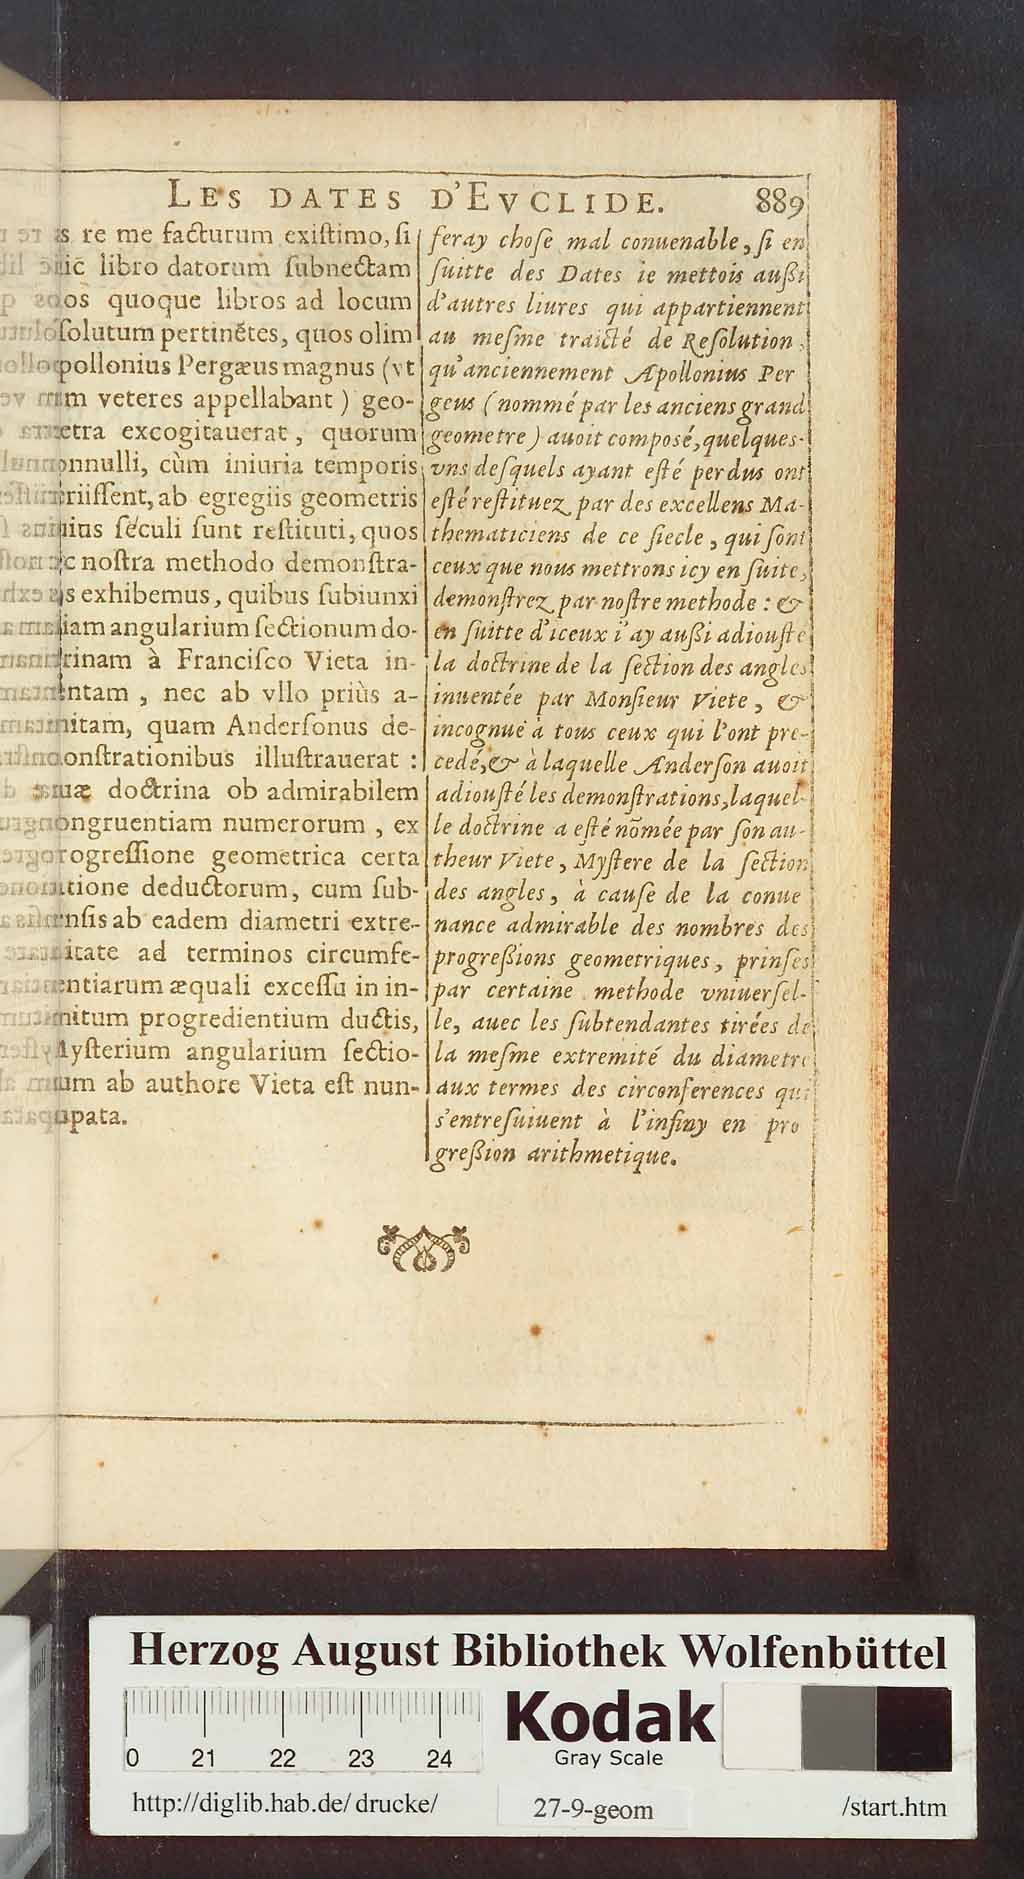 LES DATES D'EVCLIDE. 889
re me facturum existimo, si
libro datorum subnectam
quoque libros ad locum
solutum pertinētes, quos olim
pollonius Pergæus magnus (vt
veteres appellabant) geo-
excogitauerat, quorum
cùm iniuria temporis
ab egregiis geometris
séculi sunt restituti, quos
nostra methodo demonstra-
exhibemus, quibus subiunxi
angularium sectionum do-
à Francisco Vieta in-
nec ab vllo priùs a-
quam Andersonus de-
onstrationibus illustrauerat :
doctrina ob admirabilem
ongruentiam numerorum, ex
rogressione geometrica certa
deductorum, cum sub-
ab eadem diametri extre-
ad terminos circumfe-
æquali excessu in in-
progredientium ductis,
Mysterium angularium sectio-
ab authore Vieta est nun-
cupata.
feray chose mal conuenable, si en
suitte des Dates ie mettois aussi
d'autres liures qui appartiennent
au mesme traicté de Resolution,
qu'anciennement Apollonius Per
geus (nommé par les anciens grand
geometre) auoit composé, quelques-
vns desquels ayant esté perdus ont
esté restituez par des excellens Ma-
thematiciens de ce siecle, qui sont
ceux que nous mettrons icy en suite,
demonstrez par nostre methode : &
en suitte d'iceux i'ay aussi adiousté
la doctrine de la section des angles
inuentée par Monsieur Viete, &
incognuë à tous ceux qui l'ont pre-
cedé, & à laquelle Anderson auoit
adiousté les demonstrations, laquel-
le doctrine a esté nōmée par son au-
theur Viete, Mystere de la section
des angles, à cause de la conue
nance admirable des nombres des
progressions geometriques, prinses
par certaine methode vniuersel-
le, auec les subtendantes tirées de
la mesme extremité du diametre
aux termes des circonferences qui
s'entresuiuent à l'infiny en pro
gression arithmetique.
Herzog August Bibliothek Wolfenbüttel
0 21 22 23 24
Kodak
Gray Scale
http://diglib.hab.de/drucke/ 27-9-geom /start.htm